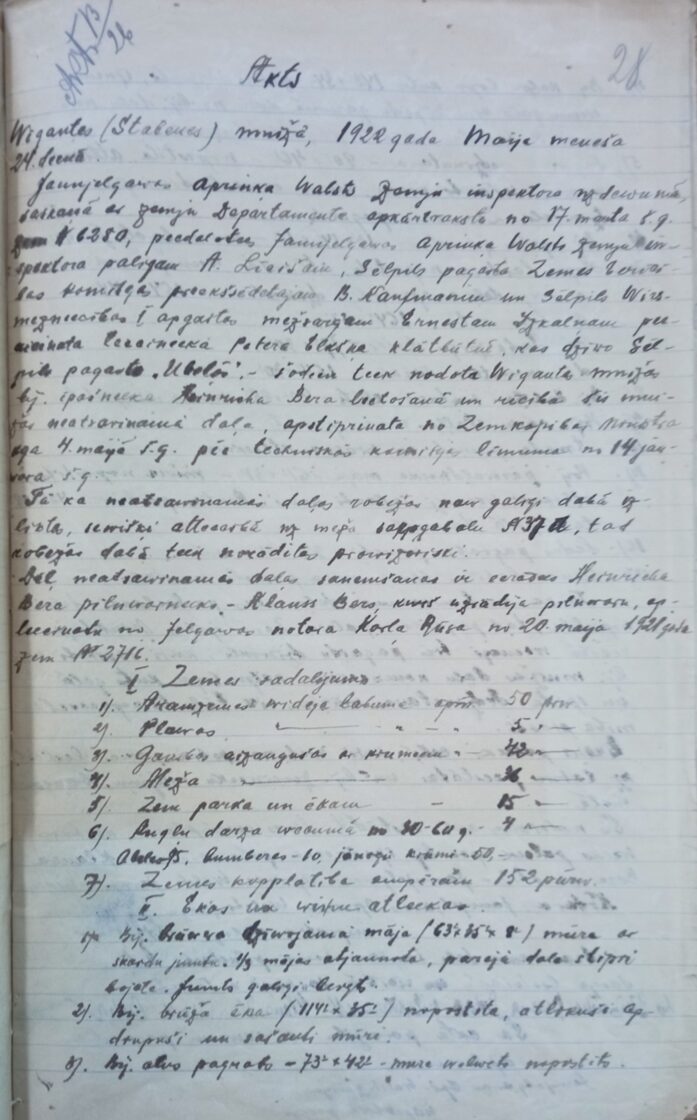 28
Akts
Wigantes (Stabenes) muižā, 1922 gada Maija meneša
24. deenā
Jaunjelgawas Aprinka Walsts Zemju inspektora uzdewumā,
saskaņā ar Zemju Departamenta apkārtrakstu no 17. marta š.g.
zem № 6280, peedaloties Jaunjelgawas Aprinka Walsts Zemju in-
spektora palīgam A. , Sēlpils pagasta Zemes
komitejas preekšsēdetajam B. Kaufmanim un Sēlpils Wirs-
mežneecibas I apgaitas mežsargam Ernestam Iskalnam pee-
aicinata leecineeka Petera klātbūtnē, kas dzīwo Sēl-
pils pagasta , - šodien teek nodota Wigantu muižas
bij. īpašneeka Heinricha Bera leetošanā un rīcībā šis mui-
žas neatsawinamā daļa, apstiprinata no Zemkopibas Ministra
4. maijā š.g. pēc techniskās komisijas lēmuma no 14 jan-
wara š.g.
Tā ka neatsawinamās daļas robežas naw galīgi dabā uz-
, sewišķi atteecībā uz meža № 37, tad
robežas dabā teek norādītas prowizoriski.
Dēļ neatsawinamās daļas saņemšanas ir eeradees Heinricha
Bera pilnwarneeks - Klauss Bers, kurš uzrādija pilnwaru, ap-
leecinatu no Jelgawas notara Karla no 20. maija 1921 gada
zem № 2716.
I Zemes sadalijums
1). Aramzemes widejā labumā apm. 50 pūrw.
2). Plawas - " - " - 5 - " -
3). Ganibas aizaugušas ar krumeem - " 42 - " -
4). Meža 36 - " -
5). Zem parka un ēkam - 15 - " -
6). Augļu dārza wecumā no 30-60 g. - 4 - " -
bumberes - 10, jānogu krūmi - 50, -
7). Zemes kopplatība 152 pūrw.
II. Ekas un wiņu atleekas.
1). Bij. dzīwojamā māja (63' x 35' x 8') mūra ar
skārdu jumtu. 1/3 mājas atjaunota, parejā daļa stipri
bojata. Jumts galīgi .
2). Bij. brūža ēka (114' x 35') nopostita, atlikuši ap-
drupuši un sašauti mūri.
3). Bij. alus pagrabs - 73' x 42' - mūra welwets nopostits.